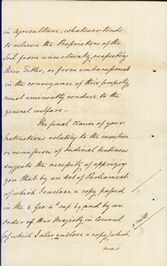 in Agriculture, whatever tends
to relieve the Proprietors of the
Soil from uncertainty respecting
their Titles, or from embarrassment
in the conveyance of their property,
must eminently conduce to the
general welfare.
The final Clause of your
Instructions relating to the
or remission of Judicial
suggests the necessity of apprizing
you that by an Act of Parliament
of which I enclose a copy passed
in the 6 Geo. 4 cap 69, and by an
Order of His Majesty in Council
(of which I also enclose a copy) which
was